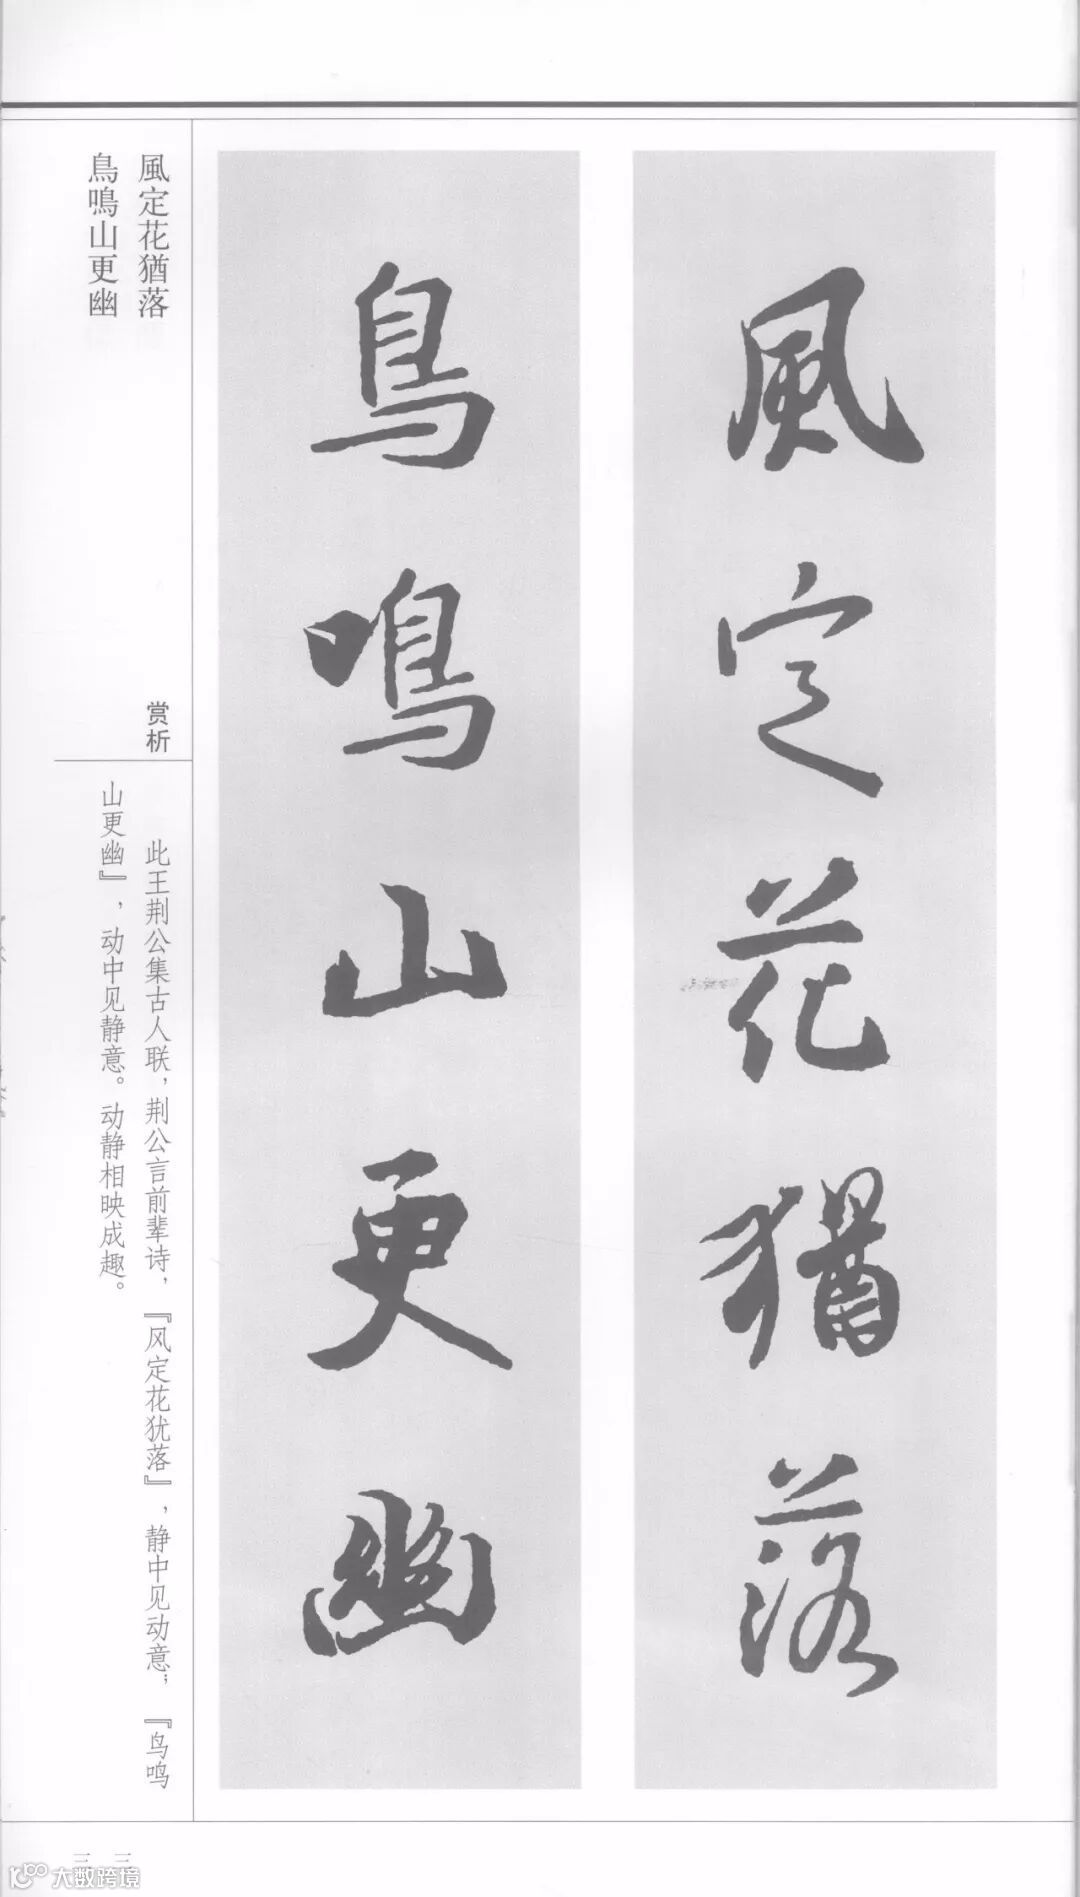 風定花猶落
鳥鳴山更幽
風定花猶落
鳥鳴山更幽
赏析
此王荆公集古人联，荆公言前辈诗，『风定花犹落』，静中见动意；『鸟鸣
山更幽』，动中见静意。动静相映成趣。
大数跨境